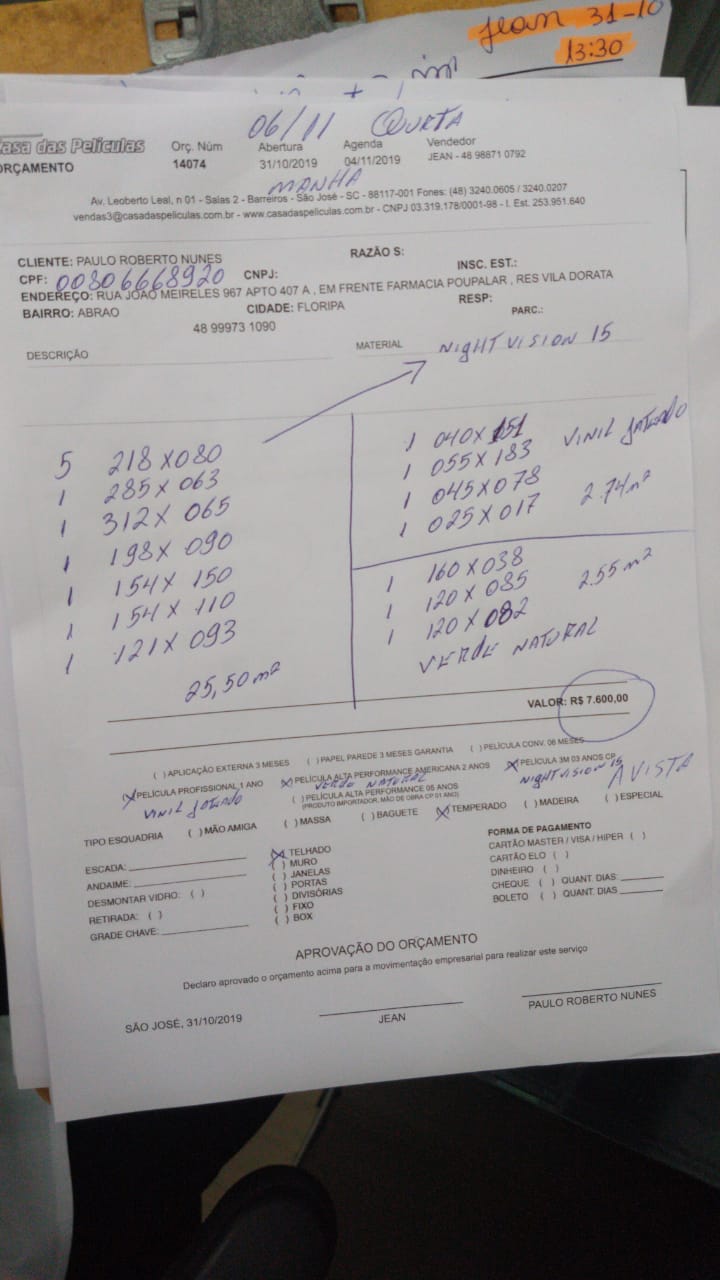 Jean 31-10
13:30
06/11 QUARTA
Casa das Películas
ORÇAMENTO
Orç. Núm Abertura Agenda Vendedor
14074 31/10/2019 04/11/2019 JEAN - 48 98871 0792
MANHA
Av. Leoberto Leal, n 01 - Salas 2 - Barreiros - São José - SC - 88117-001 Fones: (48) 3240.0605 / 3240.0207
vendas3@casadaspeliculas.com.br - www.casadaspeliculas.com.br - CNPJ 03.319.178/0001-98 - I. Est. 253.951.640
CLIENTE: PAULO ROBERTO NUNES RAZÃO S:
CPF: 00806668920 CNPJ: INSC. EST.:
ENDEREÇO: RUA JOAO MEIRELES 967 APTO 407 A , EM FRENTE FARMACIA POUPALAR , RES VILA DORATA
BAIRRO: ABRAO CIDADE: FLORIPA RESP:
48 99973 1090 PARC.:
DESCRIÇÃO MATERIAL NIGHT VISION 15
5 218 X 080
1 285 X 063
1 312 X 065
1 198 X 090
1 154 X 150
1 154 X 110
1 121 X 093
25,50 m²
1 040 X 151 VINIL JATEADO
1 055 X 183
1 045 X 078 2.74 m²
1 025 X 017
1 160 X 038
1 120 X 085 2.55 m²
1 120 X 082
VERDE NATURAL
VALOR: R$ 7.600,00
( ) APLICAÇÃO EXTERNA 3 MESES ( ) PAPEL PAREDE 3 MESES GARANTIA ( ) PELÍCULA CONV. 06 MESES
(X) PELÍCULA PROFISSIONAL 1 ANO (X) PELÍCULA ALTA PERFORMANCE AMERICANA 2 ANOS (X) PELÍCULA 3M 03 ANOS CP
VINIL JATEADO VERDE NATURAL NIGHT VISION 15 A VISTA
( ) PELÍCULA ALTA PERFORMANCE 05 ANOS
(PRODUTO IMPORTADOR, MÃO DE OBRA CP 01 ANO)
TIPO ESQUADRIA ( ) MÃO AMIGA ( ) MASSA ( ) BAGUETE (X) TEMPERADO ( ) MADEIRA ( ) ESPECIAL
ESCADA:
ANDAIME:
DESMONTAR VIDRO: ( )
RETIRADA: ( )
GRADE CHAVE:
(X) TELHADO
( ) MURO
( ) JANELAS
( ) PORTAS
( ) DIVISÓRIAS
( ) FIXO
( ) BOX
FORMA DE PAGAMENTO
CARTÃO MASTER / VISA / HIPER ( )
CARTÃO ELO ( )
DINHEIRO ( )
CHEQUE ( ) QUANT. DIAS:
BOLETO ( ) QUANT. DIAS
APROVAÇÃO DO ORÇAMENTO
Declaro aprovado o orçamento acima para a movimentação empresarial para realizar este serviço
SÃO JOSÉ, 31/10/2019 JEAN PAULO ROBERTO NUNES